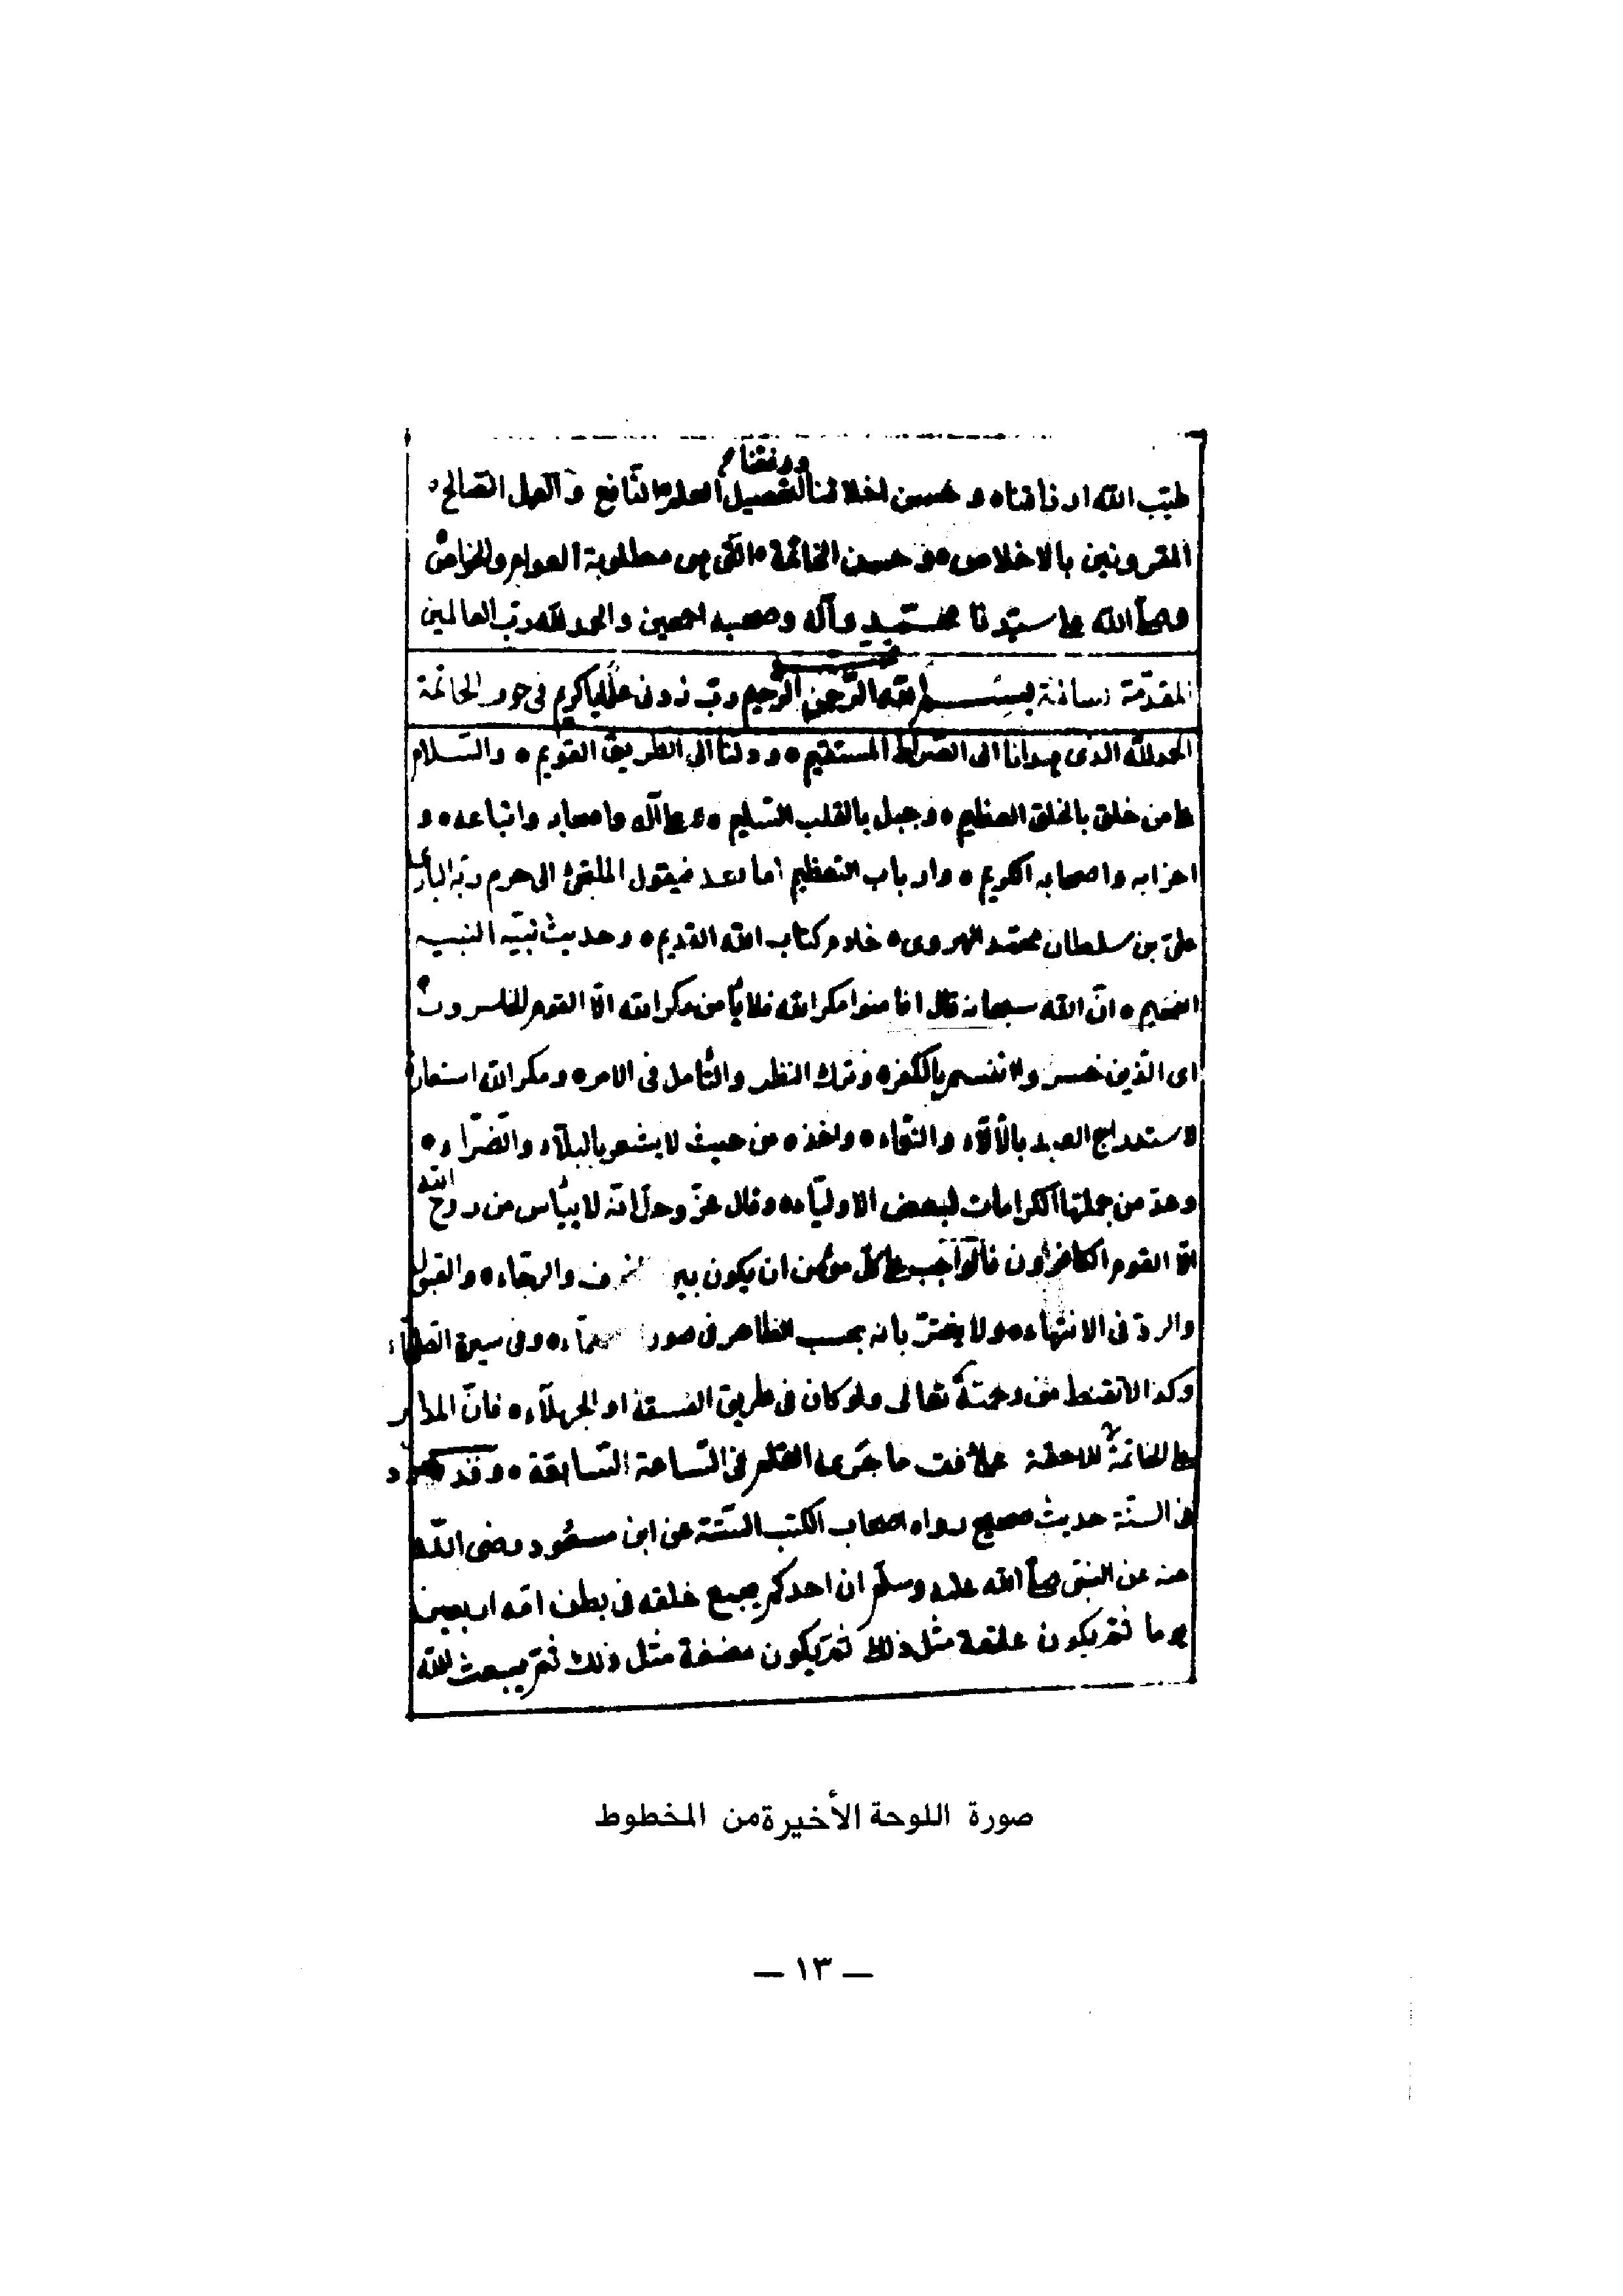 ورفقنا
طيّب الله ارزاقنا و حسن اخلاقنا لتحصيل العلم النّافع والعمل الصّالح
المقرونين بالاخلاص و حسن الخاتمة التى هى مطلوبة العوام والخواصّ
وصلى الله على سيّدنا محمّد وآله وصحبه اجمعين والحمد لله ربّ العالمين
المقدّمة بســم الله الرّحمن الرّحيم ربّ زدنى علما يا كريم فى الخاتمة
الحمد لله الذى هدانا الى الصّراط المستقيم ودلّنا الى الطريق القويم والسّلام
على من خلق بالخلق العظيم وجبل بالقلب السّليم وعلى آله واتباعه و
احزابه واصحابه الكريم وارباب التعظيم اما بعد فيقول الملتجئ الى حرم ربّه البارى
علىّ بن سلطان محمّد الهروى خادم كتاب الله القديم وحديث نبيّه النبيه
انّ الله سبحانه قال افامنوا مكر الله فلا يأمن مكر الله الّا القوم الخاسرون
اى الّذين خسروا انفسهم بالكفر وترك النظر والتأمل فى الامر ومكر الله استعارة
لاستدراج العبد بالآلاء والنعماء واخذه من حيث لا يشعر بالبلآء والضّراء
وعدّ من جملتها الكرامات لبعض الاوليآء وقال عزّ وجلّ انّه لا ييأس من روح الله
الّا القوم الكافرون فالواجب على كل مؤمن ان يكون بين والرجاء والقبول
والردّ فى الانتهاء ولا يغترّ بانه بحسب الظاهر فى صورة وفى سيرة
وكذا لا تقنط من رحمته تعالى ولو كان فى طريق الفسقة او الجهلآء فانّ المدار
على الخاتمة اللاحقة على وفق ما جرى القلم فى السّاعة السّابقة وقد
فى السنّة حديث صحيح رواه اصحاب الكتب الستّة عن ابن مسعود رضى الله
عنه عن النبىّ صلى الله عليه وسلّم ان احدكم يجمع خلقه فى بطن امّه اربعين
يوما ثم يكون علقة مثل ذلك ثم يكون مضغة مثل ذلك ثم يبعث الله
صورة اللوحة الأخيرة من المخطوط
— ١٣ —